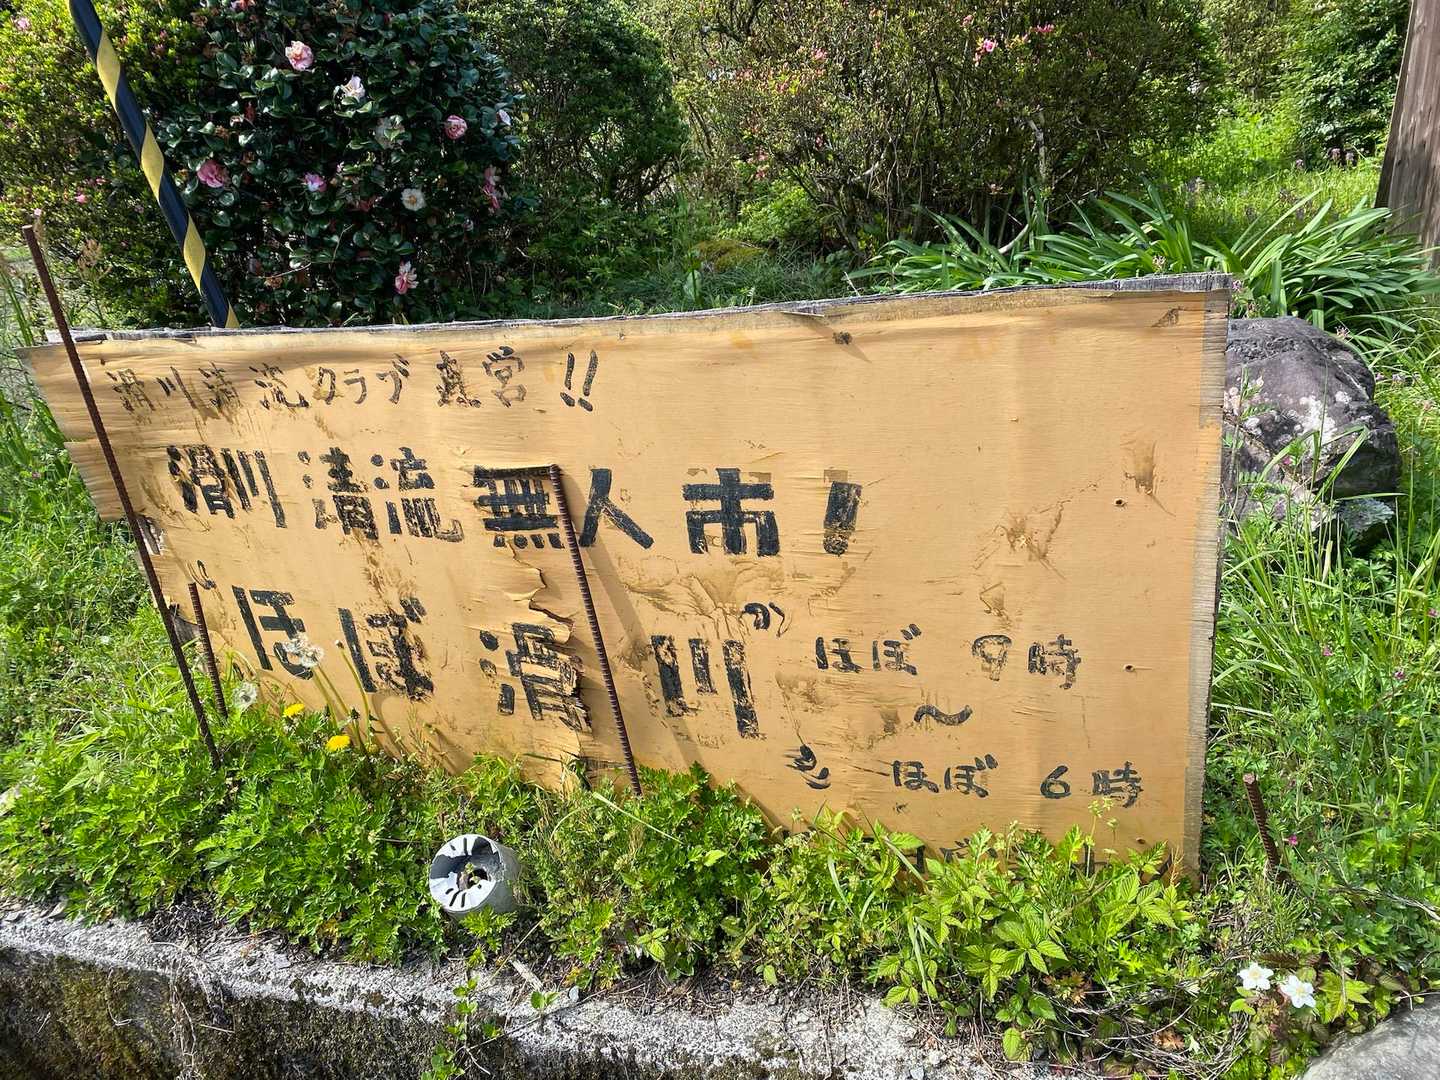 滑川清流クラブ直営!!
滑川清流無人市!
"ほぼ滑川"
ほぼ 9時
〜
ほぼ 6時